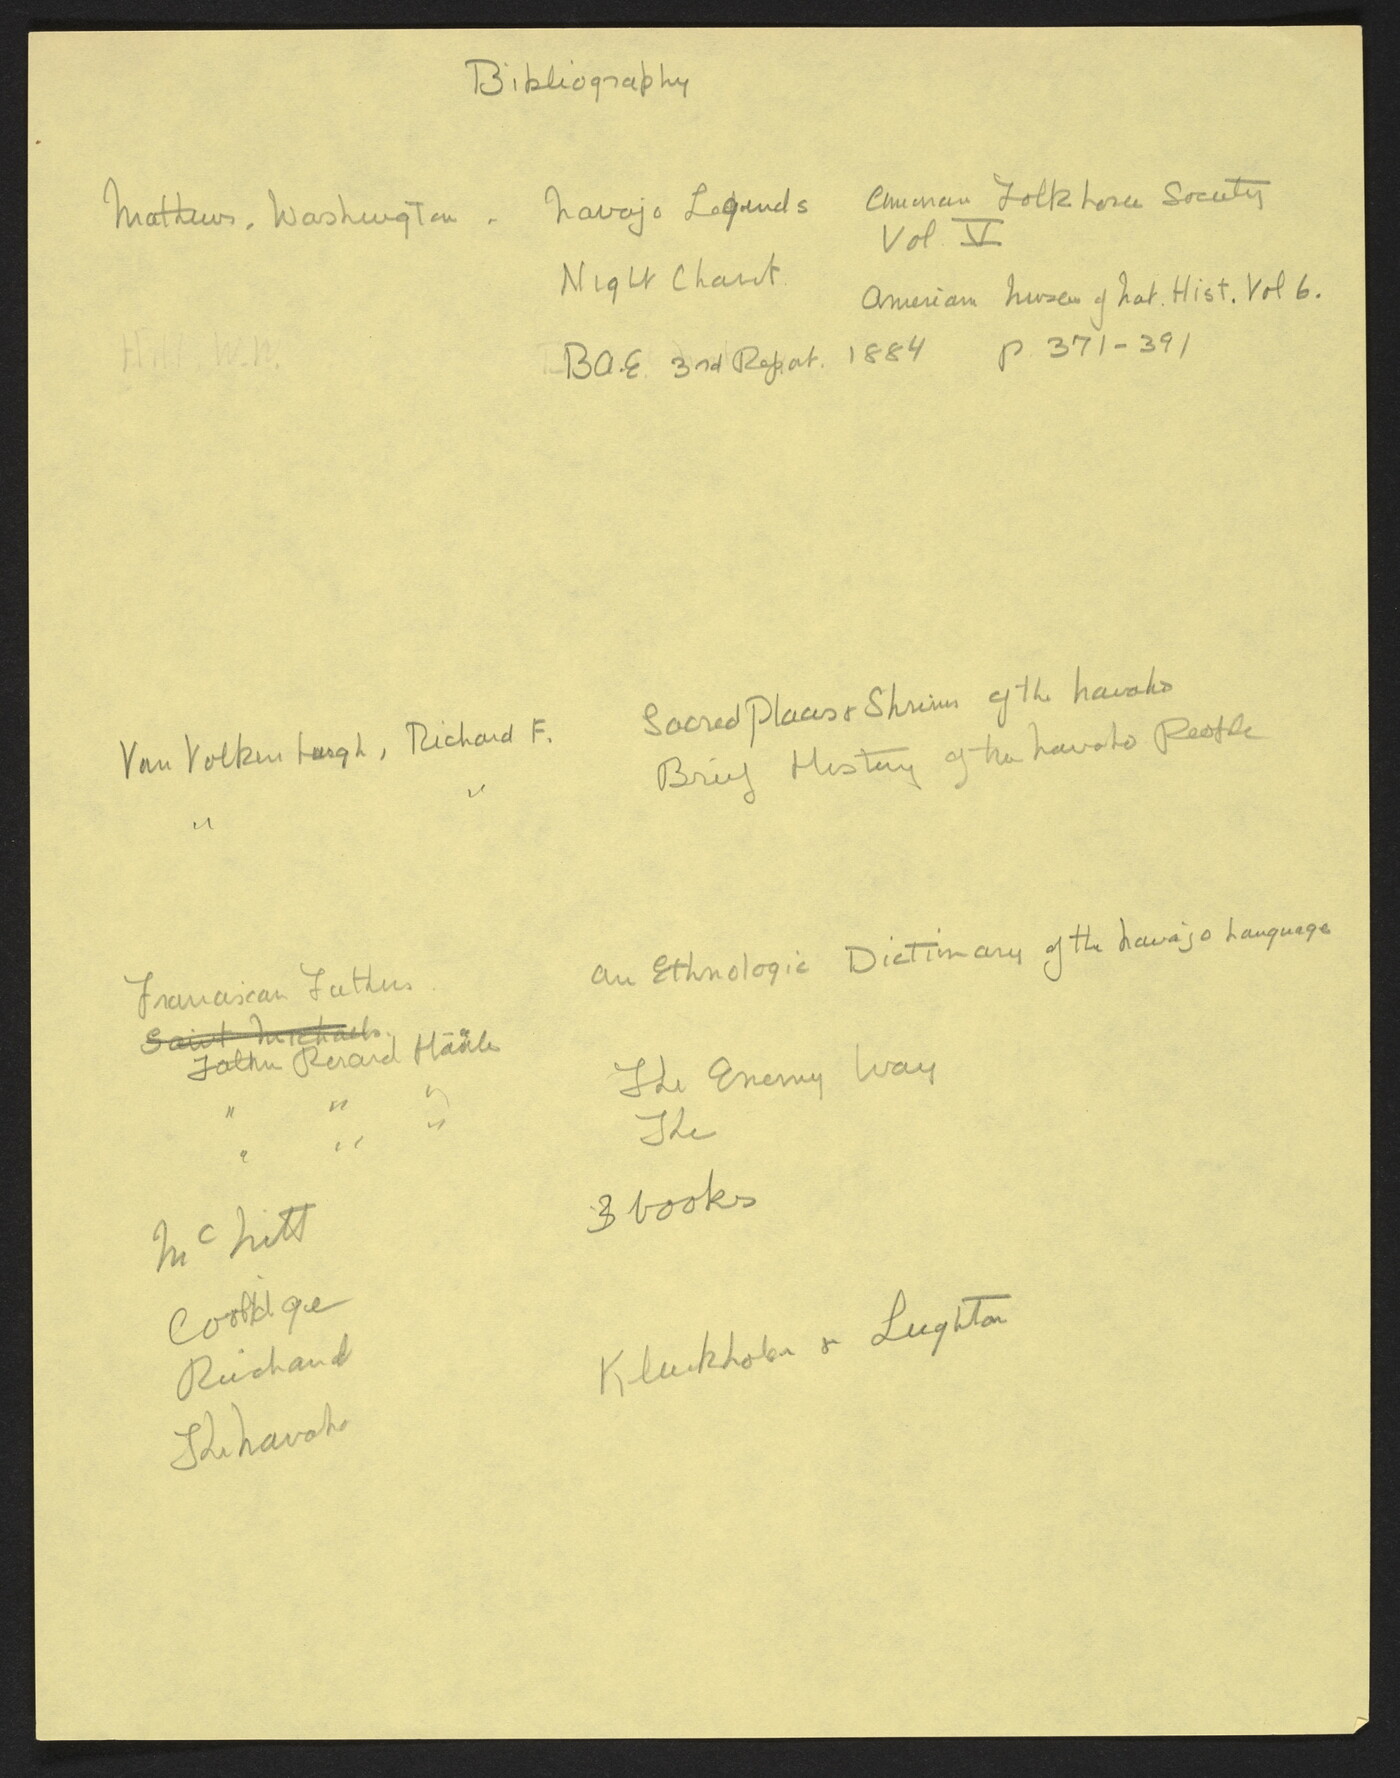 Bibliography
Mathews, Washington. Navajo Legends American Folk Lore Society
Vol V
Night Chant. American Museu of Nat. Hist. Vol 6.
Hill W.W.
B.A.E. 3rd Report. 1884 p 371-391
Van Volkenburgh, Richard F. Sacred Places & Shrines of the Navaho
" " Brief History of the Navaho People
Franciscan Fathers. An Ethnologic Dictionary of the Navajo Language
Saint Michaels.
Father Berard The Enemy Way
" " " The
" " "
McNitt 3 books
Coolidge
Richard Kluckhohn & Leighton
The Navaho